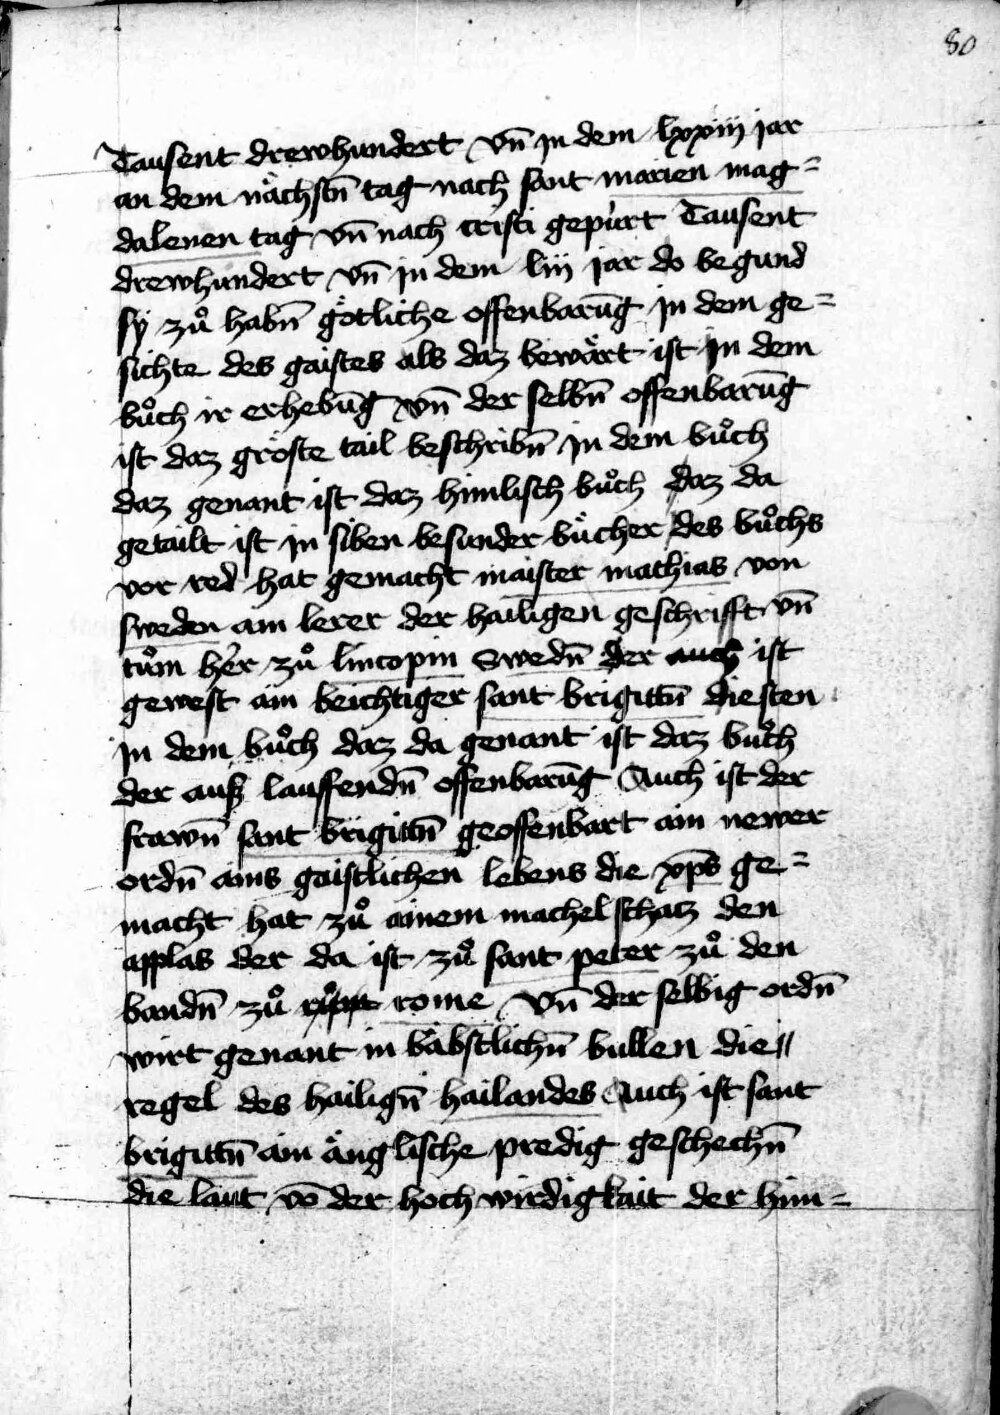 80
Tausent drewhundert vn̄ jn dem lxxiij jar
an dem nächstn̄ tag nach sant marien mag=
dalenen tag vn̄ nach cristi gepürt Tausent
drewhundert vn̄ jn dem liij jar do begund
sÿ zů habn̄ götliche offenbarūg jn dem ge=
sichte des gaistes als daz bewärt ist jn dem
bůch ir erhebūg vn̄ der selbn̄ offenbarūg
ist daz gröste tail beschribn̄ jn dem bůch
daz genant ist daz himlisch bůch daz da
getailt ist jn siben besunder bücher des bůchs
vor red hat gemacht maister mathias von
sweden ain lerer der hailigen geschrifft vn̄
tům her zů lincopin Swedn̄ der auch ist
gewest ain beichtiger sant brigittn̄ die sten
jn dem bůch daz da genant ist daz bůch
der auß lauffendn̄ offenbarūg Auch ist der
frawn̄ sant brigittn̄ geoffenbart ain newer
ordn̄ ains gaistlichen lebens die xp̄s ge=
macht hat zů ainem machelschatz den
applas der da ist zů sant peter zů den
bandn̄ zů rome vn̄ der selbig ordn̄
wirt genant in bäbstlichn̄ bullen die
regel des hailign̄ hailandes Auch ist sant
brigittn̄ ain änglische predig geschechn̄
die laut vō der hochwirdigkait der him=